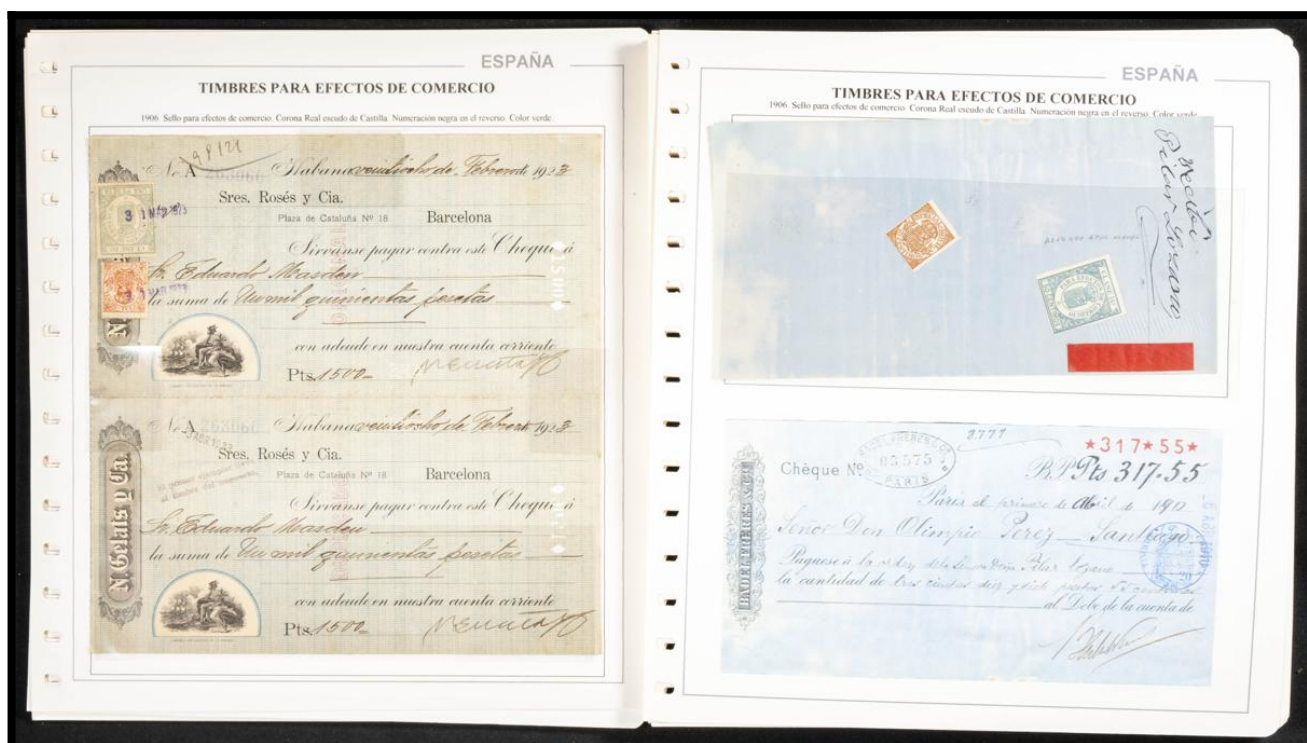 ESPAÑA
TIMBRES PARA EFECTOS DE COMERCIO
1906. Sello para efectos de comercio. Corona Real escudo de Castilla. Numeración negra en el reverso. Color verde.
No. A 263060 Habana veintiocho de Febrero de 1923
Sres. Rosés y Cia.
Plaza de Cataluña Nº 18 Barcelona
Sírvanse pagar contra este Cheque á
Sr. Eduardo Masdeu
la suma de Un mil quinientas pesetas
con adeudo en nuestra cuenta corriente
Pts. 1500-
No. A 263060 Habana veintiocho de Febrero de 1923
3 ABR 1923
Sres. Rosés y Cia.
Plaza de Cataluña Nº 18 Barcelona
Sírvanse pagar contra este Cheque á
Sr. Eduardo Masdeu
la suma de Un mil quinientas pesetas
con adeudo en nuestra cuenta corriente
Pts. 1500-
N. Gelats y Ca.
ESPAÑA
TIMBRES PARA EFECTOS DE COMERCIO
1906. Sello para efectos de comercio. Corona Real escudo de Castilla. Numeración negra en el reverso. Color verde.
Recibí
Pilar Lozano
3.777
★317★55★
Chèque Nº 03575 B.P. Pts 317.55
PARIS
Paris el primero de Abril de 1910
Señor Don Olimpio Perez Santiago.
Paguese á la orden de la Señora Doña Pilar Lozano
la cantidad de tres cientos diez y siete pesetas 55 centimos
al Debe de la cuenta de
BADEL FRERES & Cº